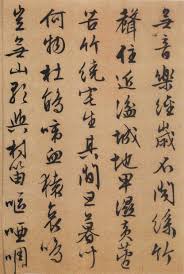 無音樂終歲不聞絲竹
聲住近湓城地卑濕黃蘆
苦竹繞宅生其間旦暮聞
何物杜鵑啼血猿哀鳴
豈無山歌與村笛嘔啞啁